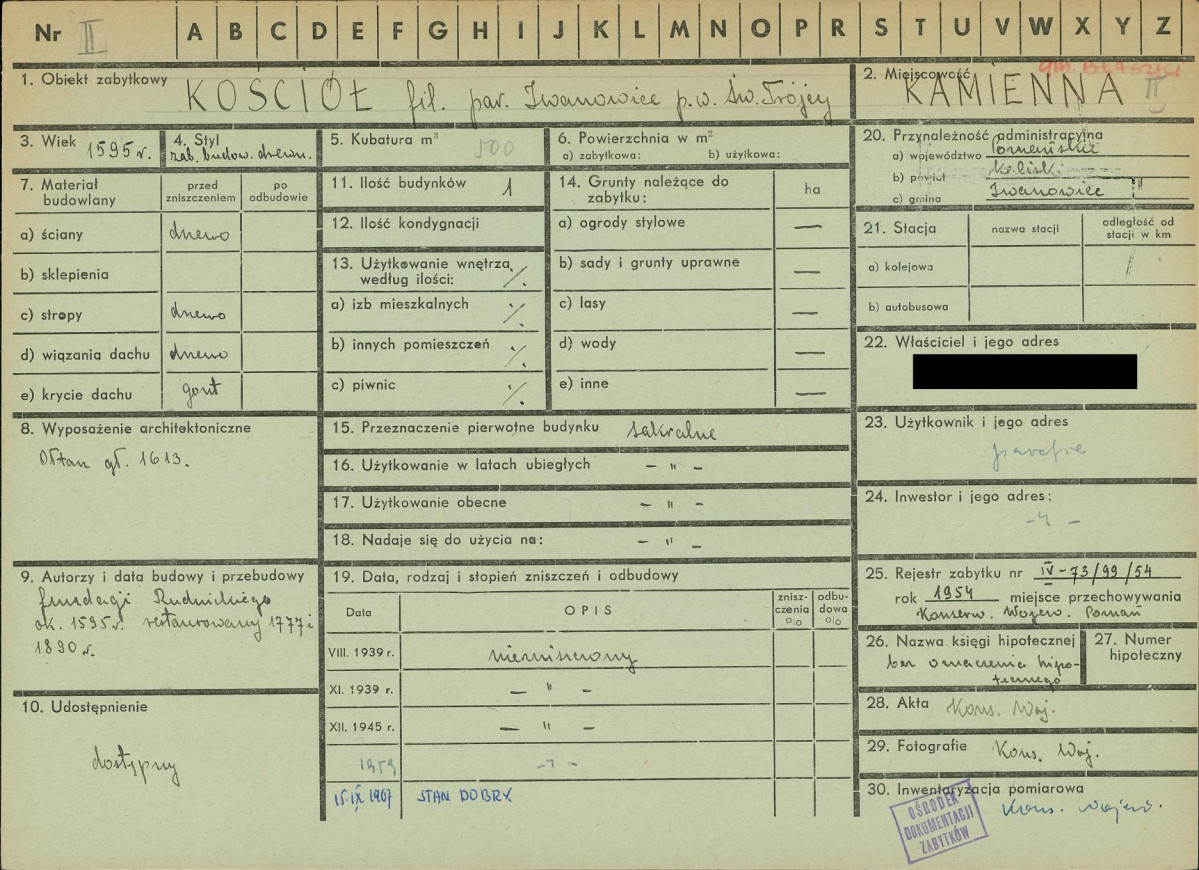 Nr II A B C D E F G H I J K L M N O P R S T U V W X Y Z
gm. BŁASZKI
1. Obiekt zabytkowy KOŚCIÓŁ fil. par. Iwanowice p.w. Św. Trójcy
2. Miejscowość KAMIENNA II
3. Wiek 1595 r.
4. Styl zab. budow. drewn.
5. Kubatura m³ 500
6. Powierzchnia w m²
a) zabytkowa: b) użytkowa:
7. Materiał budowlany
przed zniszczeniem
po odbudowie
a) ściany drewno
b) sklepienia
c) stropy drewno
d) wiązania dachu drewno
e) krycie dachu gont
8. Wyposażenie architektoniczne
Ołtarz gł. 1613.
9. Autorzy i data budowy i przebudowy
fundacji Rudnickiego
ok. 1595 r. restaurowany 1777 i
1890 r.
10. Udostępnienie
dostępny
11. Ilość budynków 1
12. Ilość kondygnacji
13. Użytkowanie wnętrza
według ilości: ·/.
a) izb mieszkalnych ·/.
b) innych pomieszczeń ·/.
c) piwnic ·/.
14. Grunty należące do
zabytku:
ha
a) ogrody stylowe —
b) sady i grunty uprawne —
c) lasy —
d) wody —
e) inne —
15. Przeznaczenie pierwotne budynku sakralne
16. Użytkowanie w latach ubiegłych – " –
17. Użytkowanie obecne – " –
18. Nadaje się do użycia na: – " –
19. Data, rodzaj i stopień zniszczeń i odbudowy
Data
OPIS
znisz-
czenia
%
odbu-
dowa
%
VIII. 1939 r. niezniszczony
XI. 1939 r. – " –
XII. 1945 r. – " –
1959 – " –
15.IX 1967 STAN DOBRY
20. Przynależność administracyjna
a) województwo Poznańskie
b) powiat Kaliski
c) gmina Iwanowice
21. Stacja
nazwa stacji
odległość od
stacji w km
a) kolejowa
b) autobusowa
22. Właściciel i jego adres
23. Użytkownik i jego adres
parafia
24. Inwestor i jego adres:
– " –
25. Rejestr zabytku nr IV-73/99/54
rok 1954 miejsce przechowywania
Konserw. Wojew. Poznań
26. Nazwa księgi hipotecznej
bez oznaczenia hipo-
tecznego
27. Numer
hipoteczny
28. Akta Kons. Woj.
29. Fotografie Kons. Woj.
30. Inwentaryzacja pomiarowa
Kons. Wojew.
OŚRODEK
DOKUMENTACJI
ZABYTKÓW